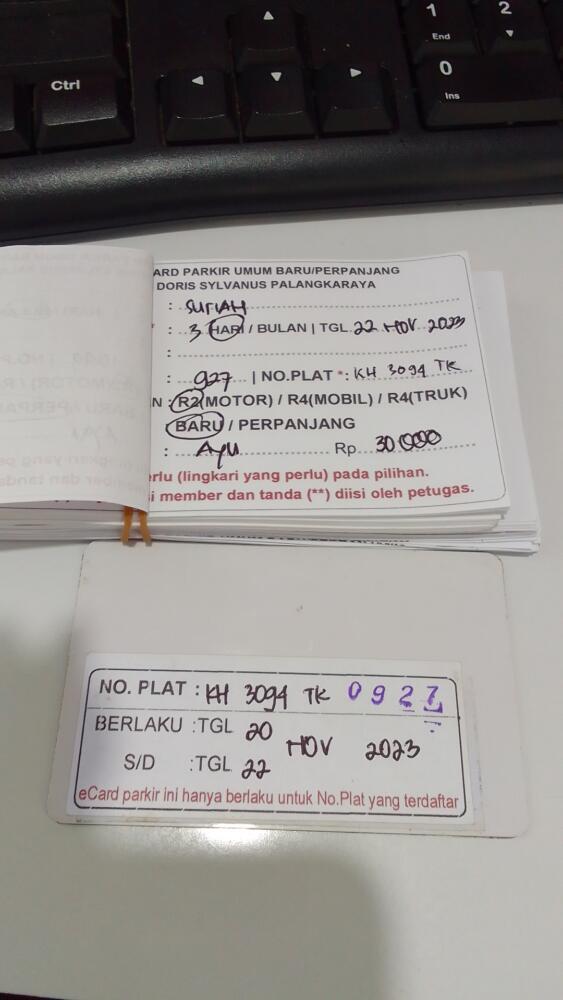 Ctrl
1
End
2
0
Ins
ARD PARKIR UMUM BARU/PERPANJANG
DORIS SYLVANUS PALANGKARAYA
: SURIAH
: 3 HARI / BULAN | TGL. 22 NOV 2023
:
: 927 | NO.PLAT *: KH 3094 TK
N : R2(MOTOR) / R4(MOBIL) / R4(TRUK)
BARU / PERPANJANG
: Ayu Rp. 30.000
erlu (lingkari yang perlu) pada pilihan.
i member dan tanda (**) diisi oleh petugas.
NO. PLAT : KH 3094 TK 0927
BERLAKU :TGL 20
NOV 2023
S/D :TGL 22
eCard parkir ini hanya berlaku untuk No.Plat yang terdaftar